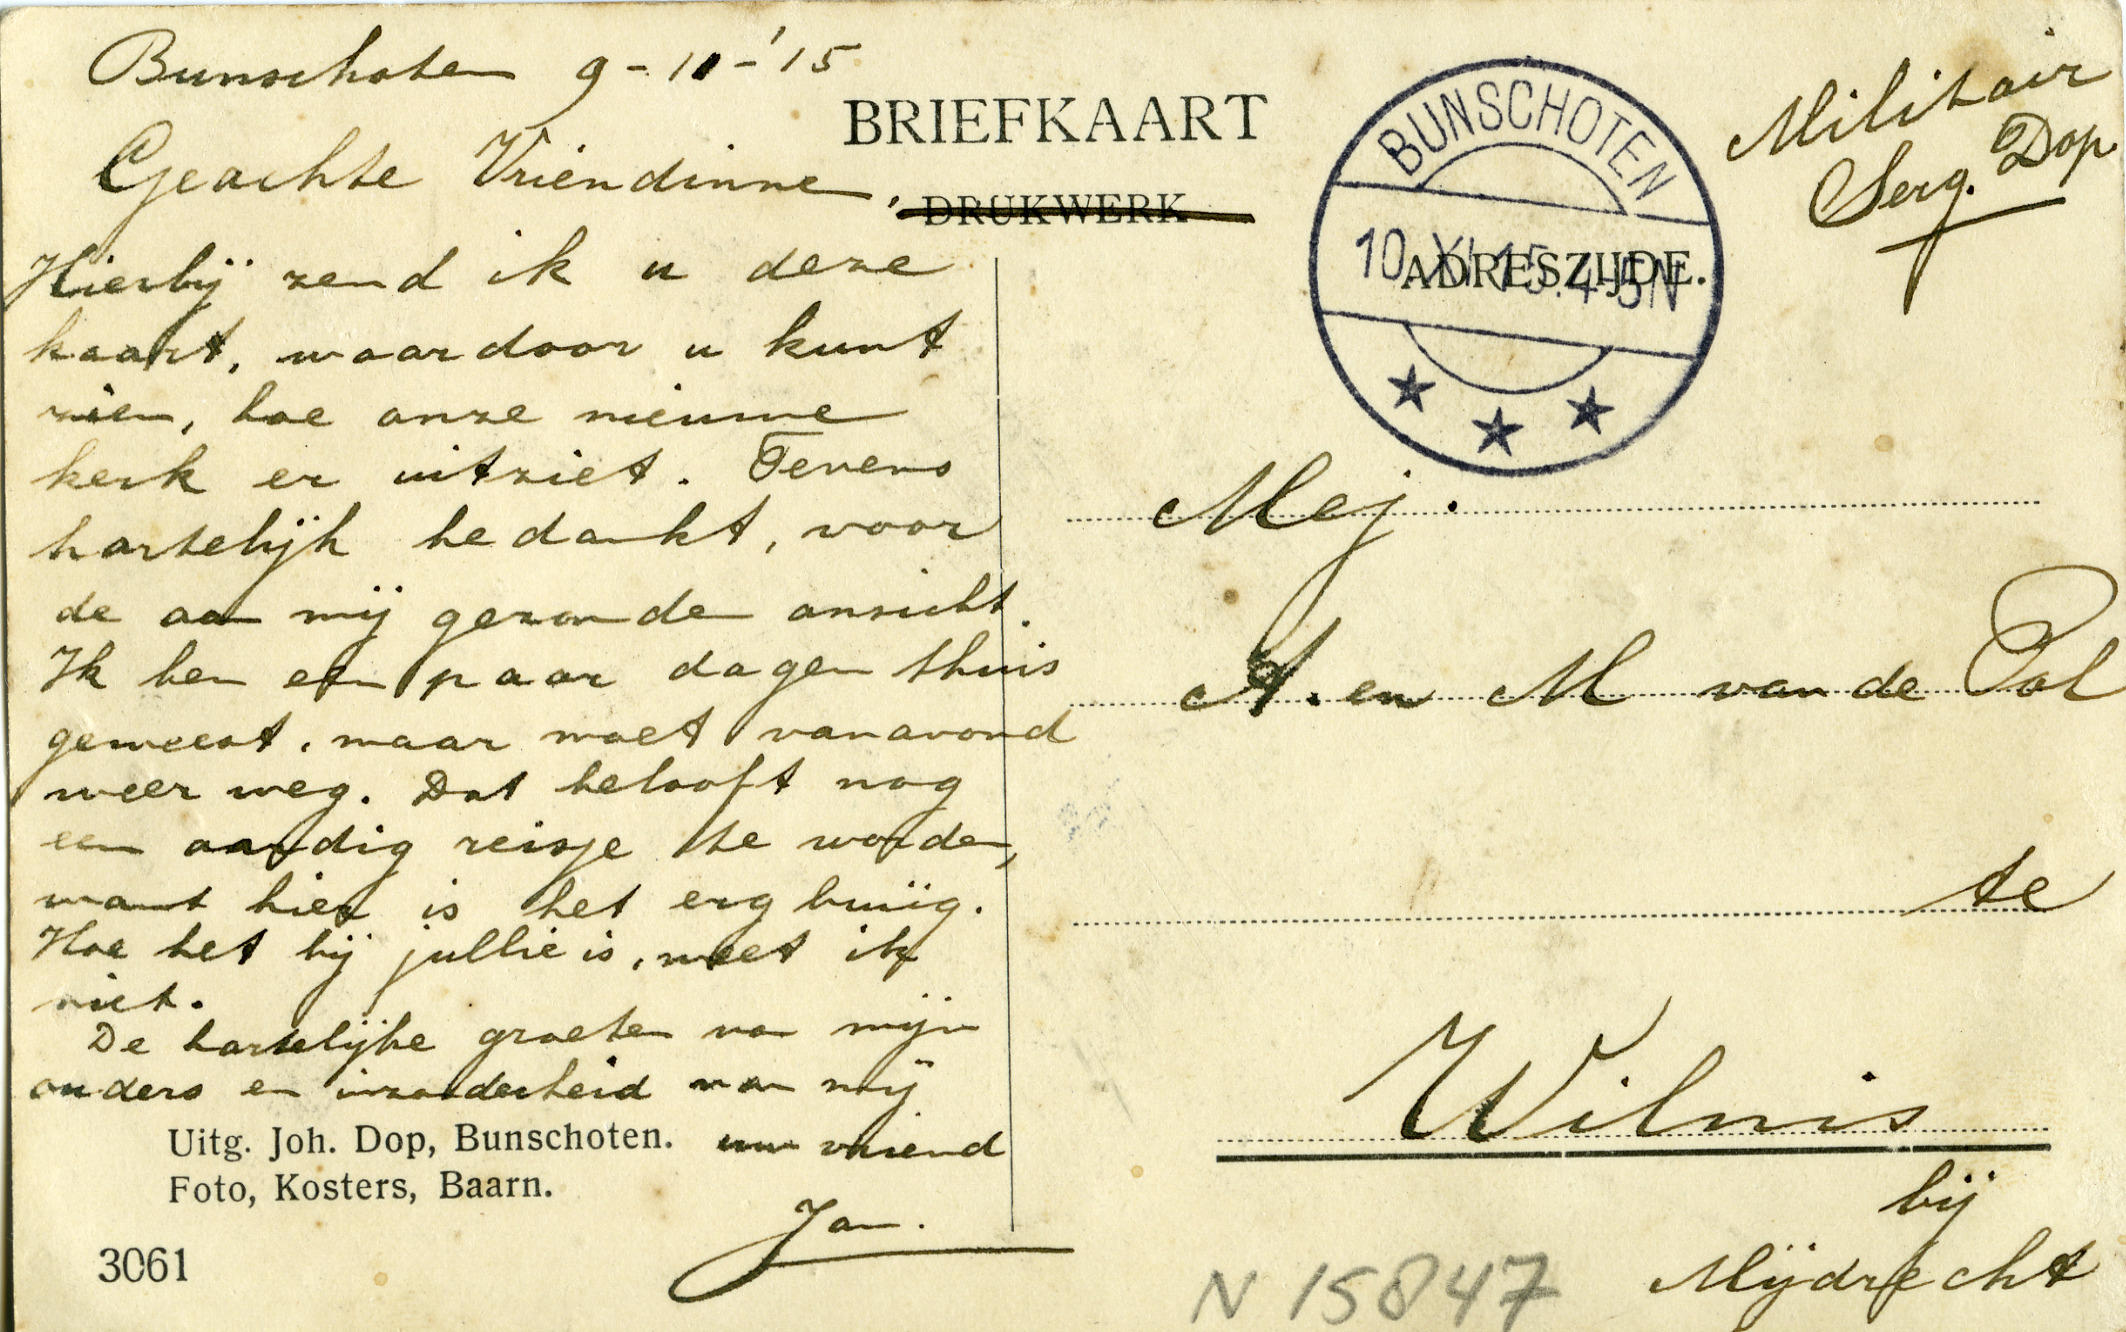 Bunschoten 9-11-'15
Geachte Vriendinne,
Hierbij zend ik u deze
kaart, waardoor u kunt
zien, hoe onze nieuwe
kerk er uitziet. Tevens
hartelijk bedankt, voor
de aan mij gezonden ansicht.
Ik ben een paar dagen thuis
geweest, maar moet vanavond
weer weg. Dat belooft nog
een aardig reisje te worden,
want hier is het erg buiig.
Hoe het bij jullie is, weet ik
niet.
De hartelijke groeten van mijn
ouders en inzonderheid van mij
uw vriend
Jan.
Uitg. Joh. Dop, Bunschoten.
Foto, Kosters, Baarn.
3061
BRIEFKAART
DRUKWERK
ADRESZIJDE.
BUNSCHOTEN
10 XI 15 4-5N
Militair
Serg. Dop.
Mej.
A. en M van de Pol
te
Wilnis
bij
Mijdrecht
N 15847